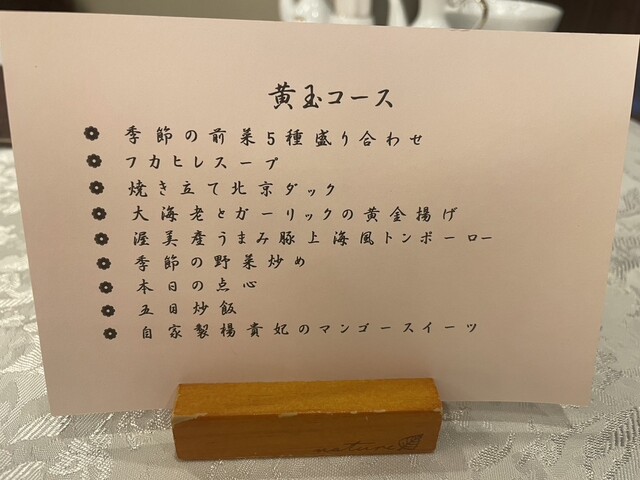 黄玉コース
季節の前菜5種盛り合わせ
フカヒレスープ
焼き立て北京ダック
大海老とガーリックの黄金揚げ
渥美産うまみ豚上海風トンポーロー
季節の野菜炒め
本日の点心
五目炒飯
自家製楊貴妃のマンゴースイーツ